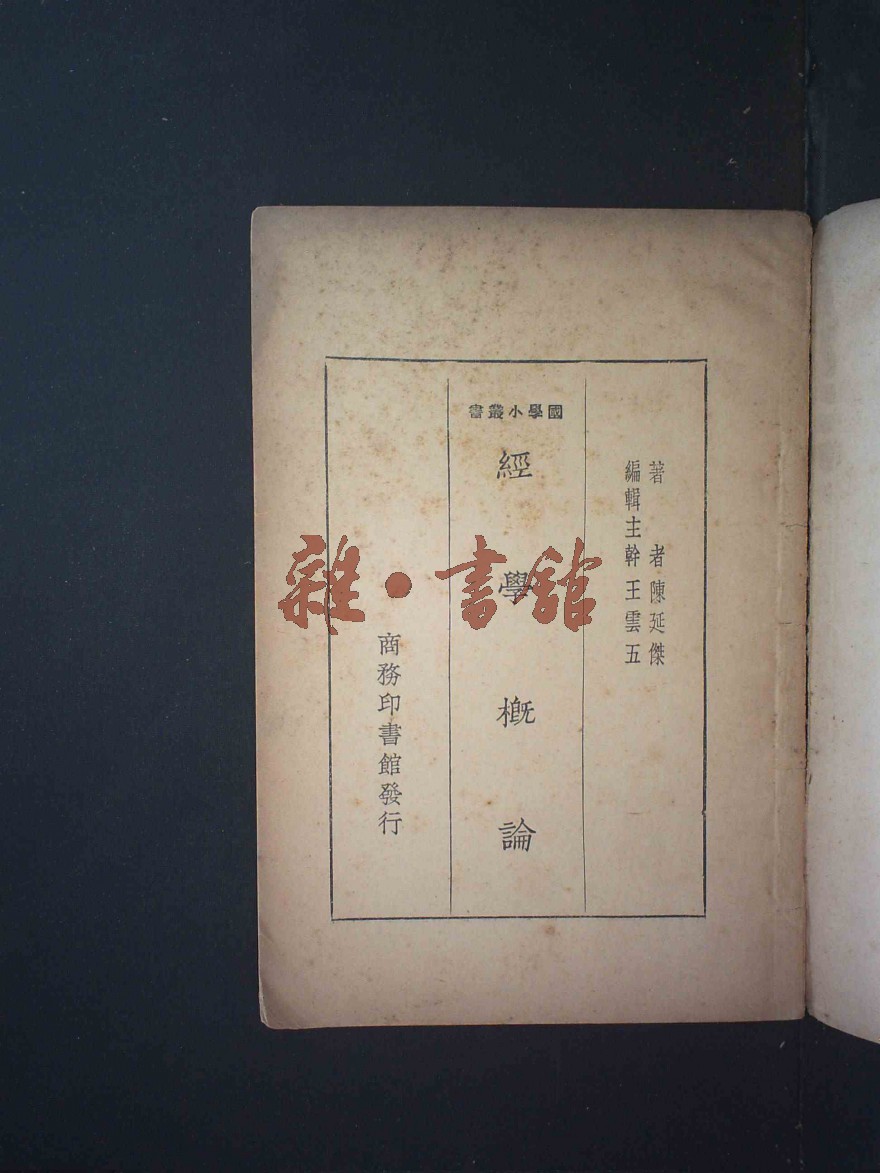 著者陳延傑
編輯主幹王雲五
國學小叢書
經學概論
商務印書館發行
雜·書館